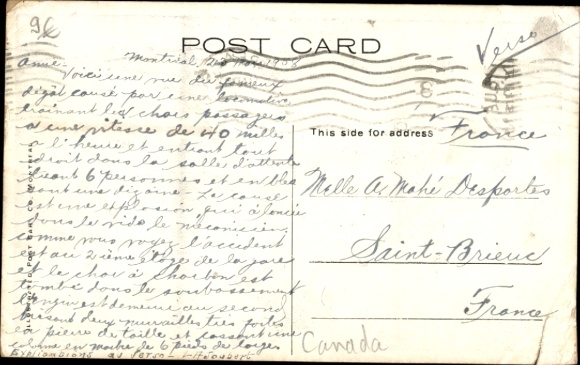 9€
Verso
POST CARD
Montréal, 1908
Voici une vue du fameux
dégat causé par une locomotive
trainant les chars passagers
a une vitesse de 40 milles
a l'heure et entrant tout
droit dans la salle d'attente
tuant 6 personnes et en bles
sant une dizaine - La cause
est une explosion qui a lancé
dans le vide le mécanicien.
comme vous voyez l'accident
est au 2ième étage de la gare
et le char à charbon est
tombé dans le soubassement
l'engin est demeuré au second
brisant deux murailles très fortes
en pierre de taille et cassant une
colonne en marbre de 6 pieds de large
Explications au verso -
This side for address
France
Melle A. Mahé Desportes
Saint-Brieuc
France
Canada